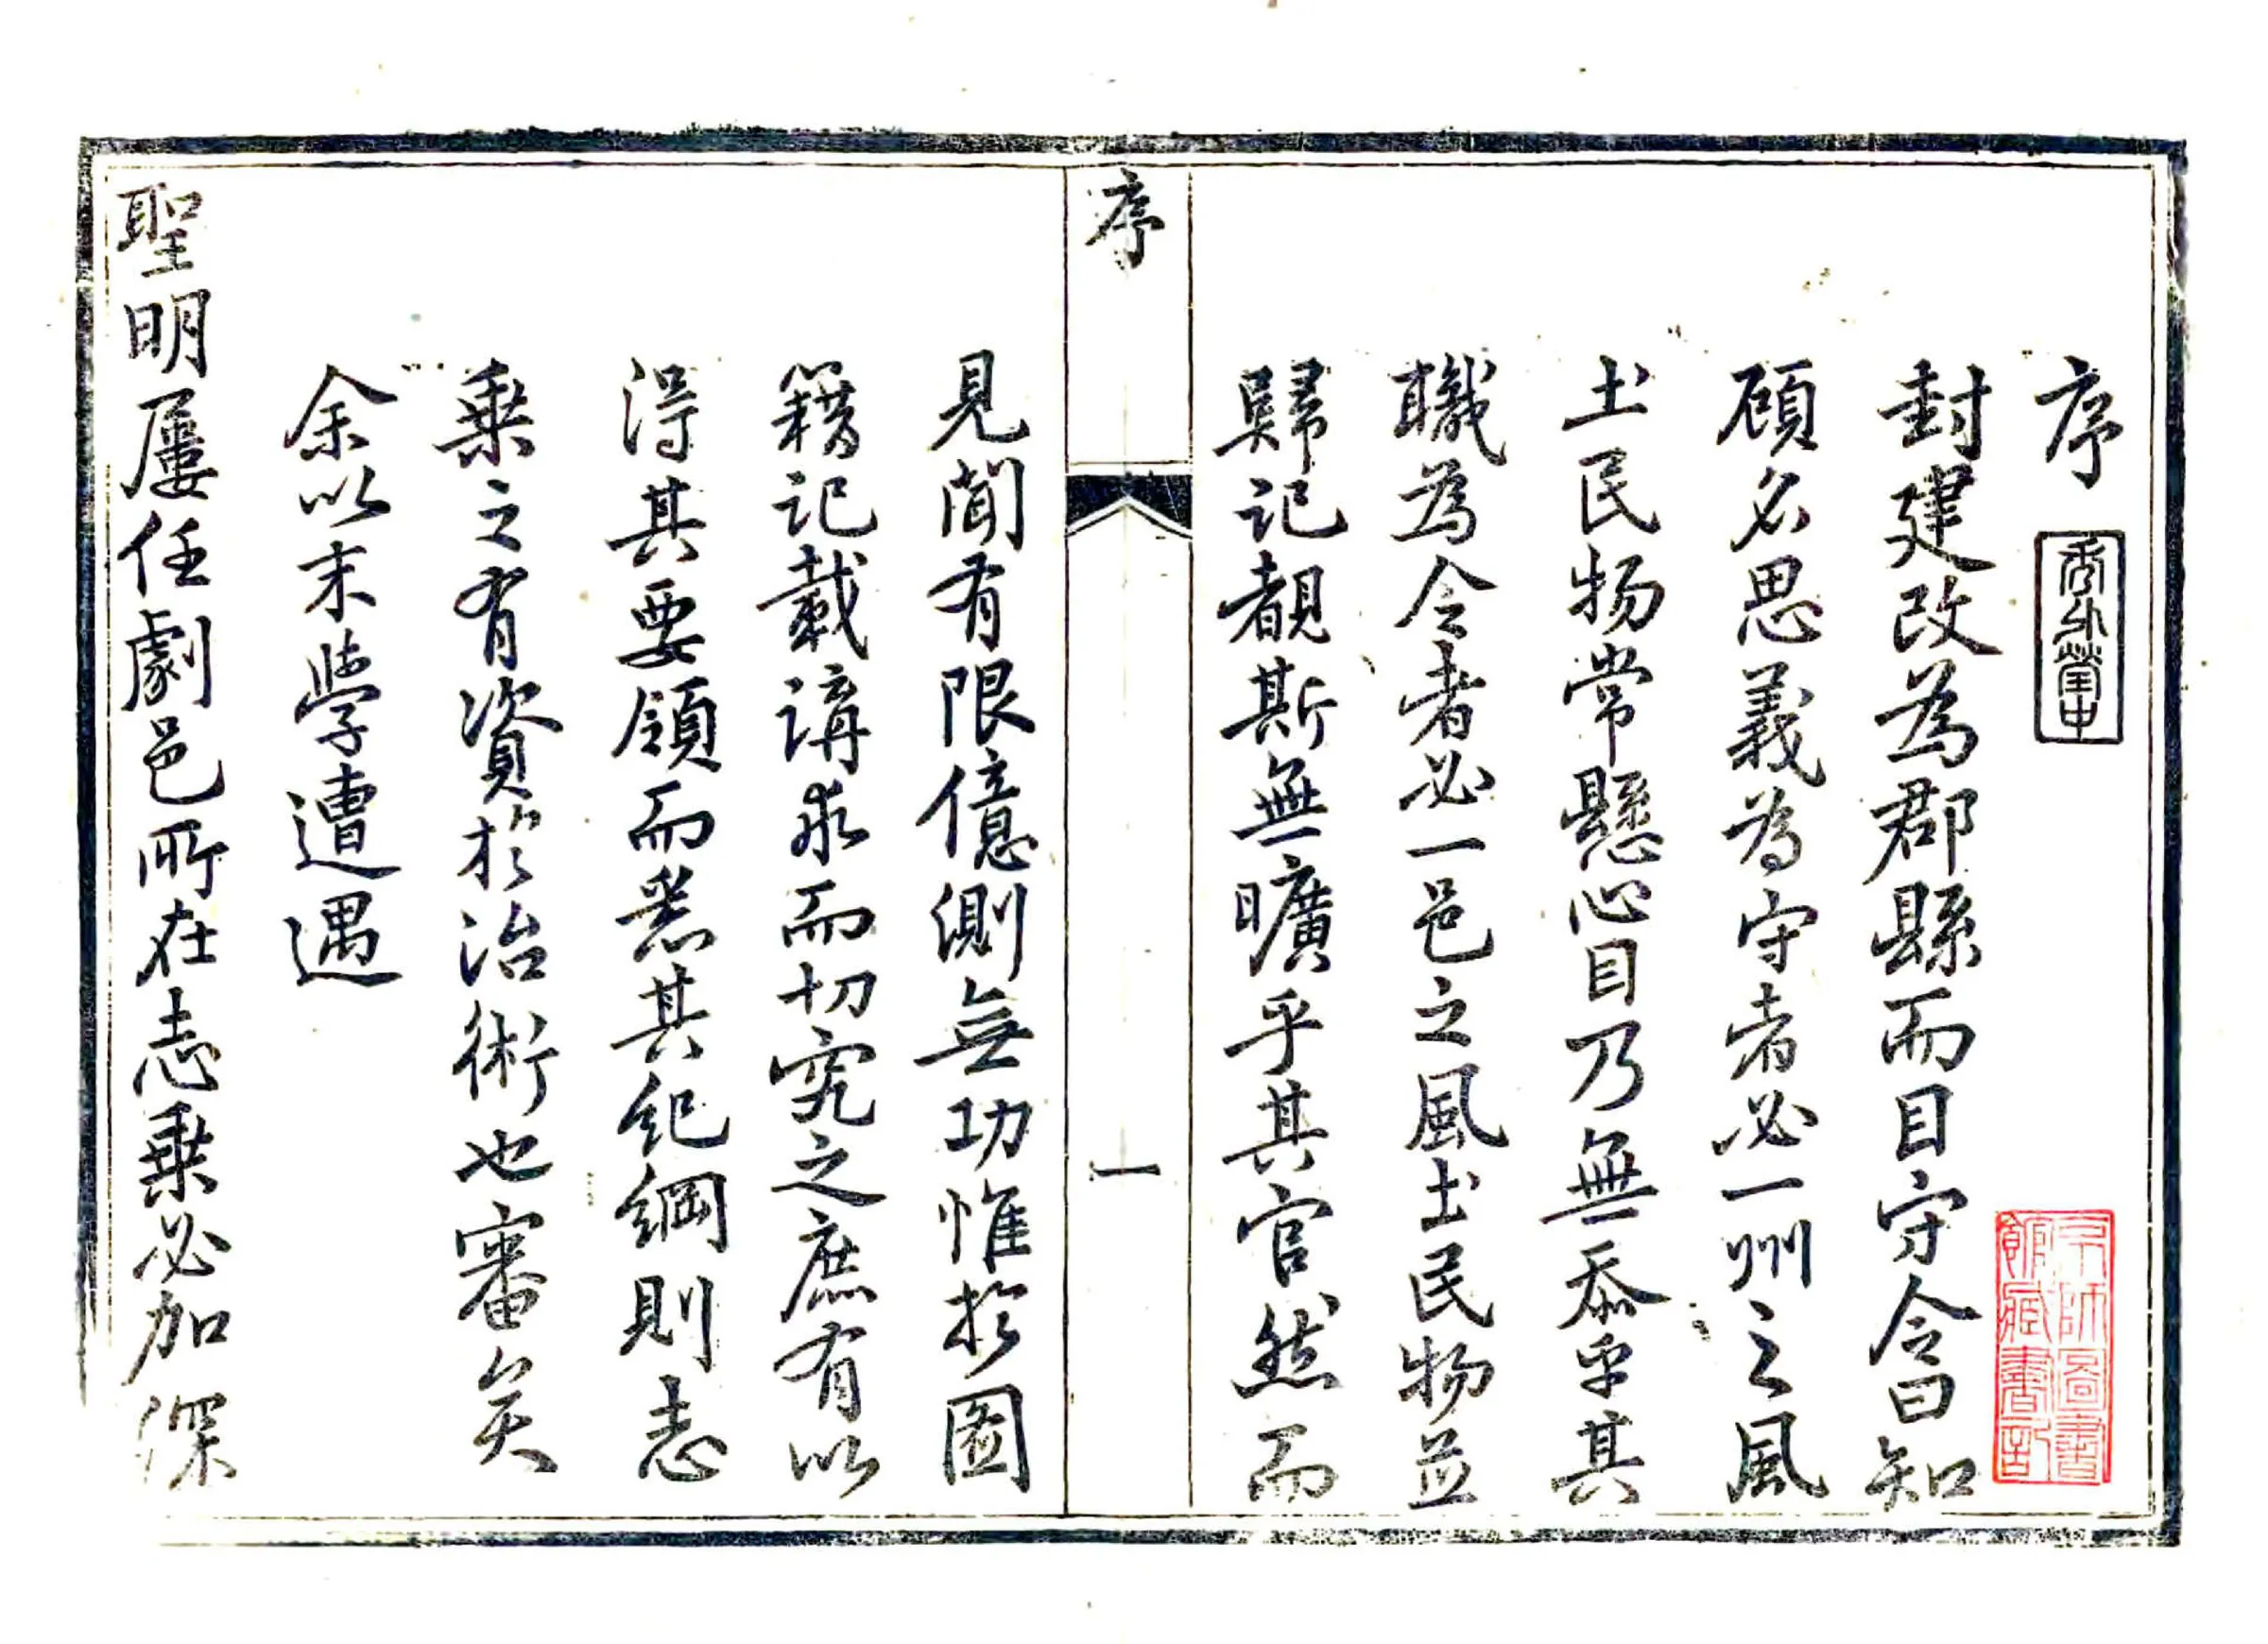 序
封建改為郡縣而目守令曰知
顧名思義為守者必一州之風
土民物常懸心目乃無忝乎其
職為令者必一邑之風土民物並
歸記覩斯無曠乎其官然而
序
一
見聞有限億測無功惟於圖
籍記載講求而切究之庶有以
得其要領而悉其紀綱則志
乘之有資於治術也審矣
余以末學遭遇
聖明屢任劇邑所在志乘必加深
京師圖書
館藏書記